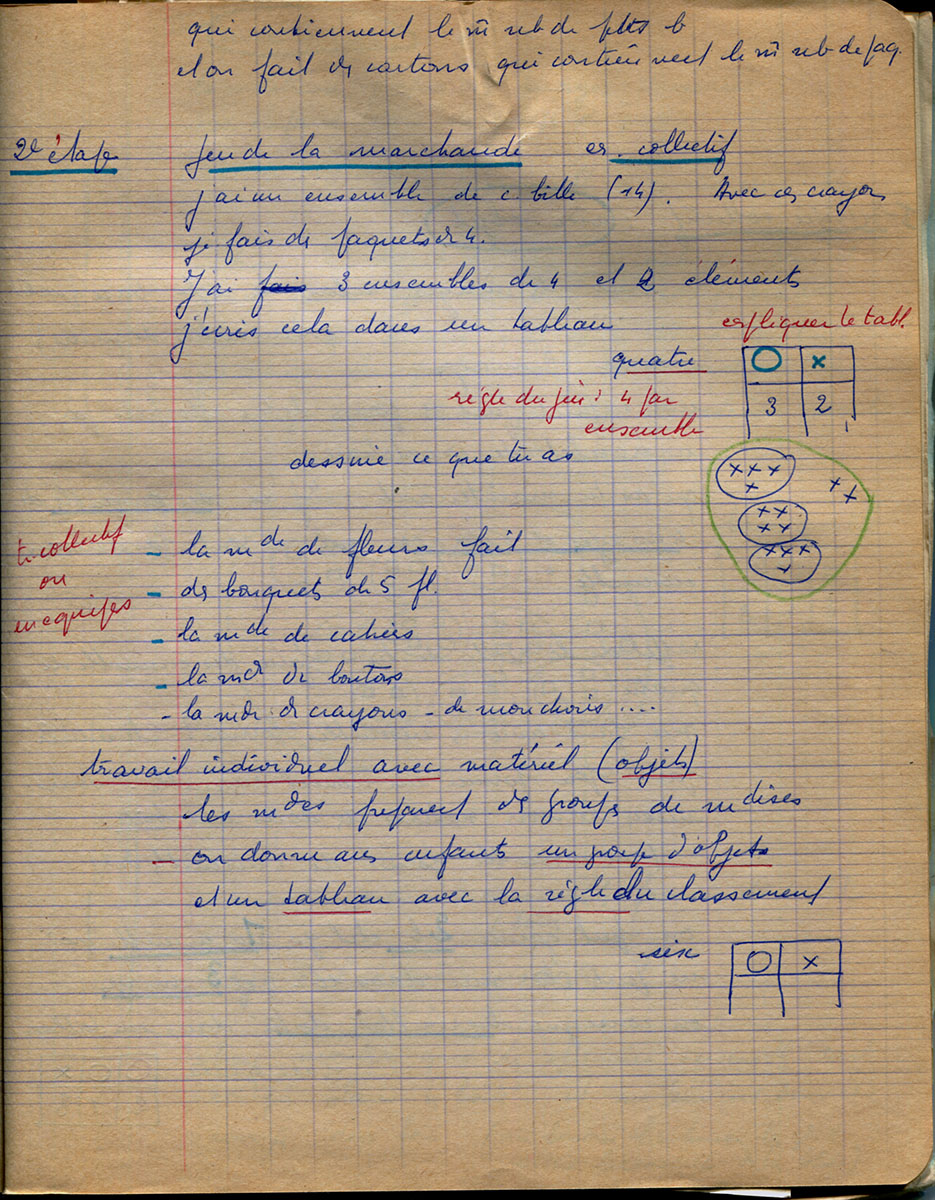 qui contiennent le m̄ nb de ptts b
et on fait des cartons qui contiennent le m̄ nb de paq.
2e étape jeu de la marchande ex. collectif
j'ai un ensemble de c bille (14). Avec ces crayons
je fais ds paquets de 4.
J'ai fais 3 ensembles de 4 et 2 éléments
j'écris cela dans un tableau
expliquer le tabl.
quatre O x
3 2
règle du jeu : 4 par
ensemble
dessine ce que tu as
t. collectif
ou
en équipes
- la mde de fleurs fait
- des bouquets de 5 fl.
- la mde de cahiers
- la mde de boutons
- la mde de crayons - de mouchoirs ....
travail individuel avec matériel (objets)
les mdes préparent ds groupes de mdises
- on donne aux enfants un groupe d'objets
et un tableau avec la règle du classement
six O x